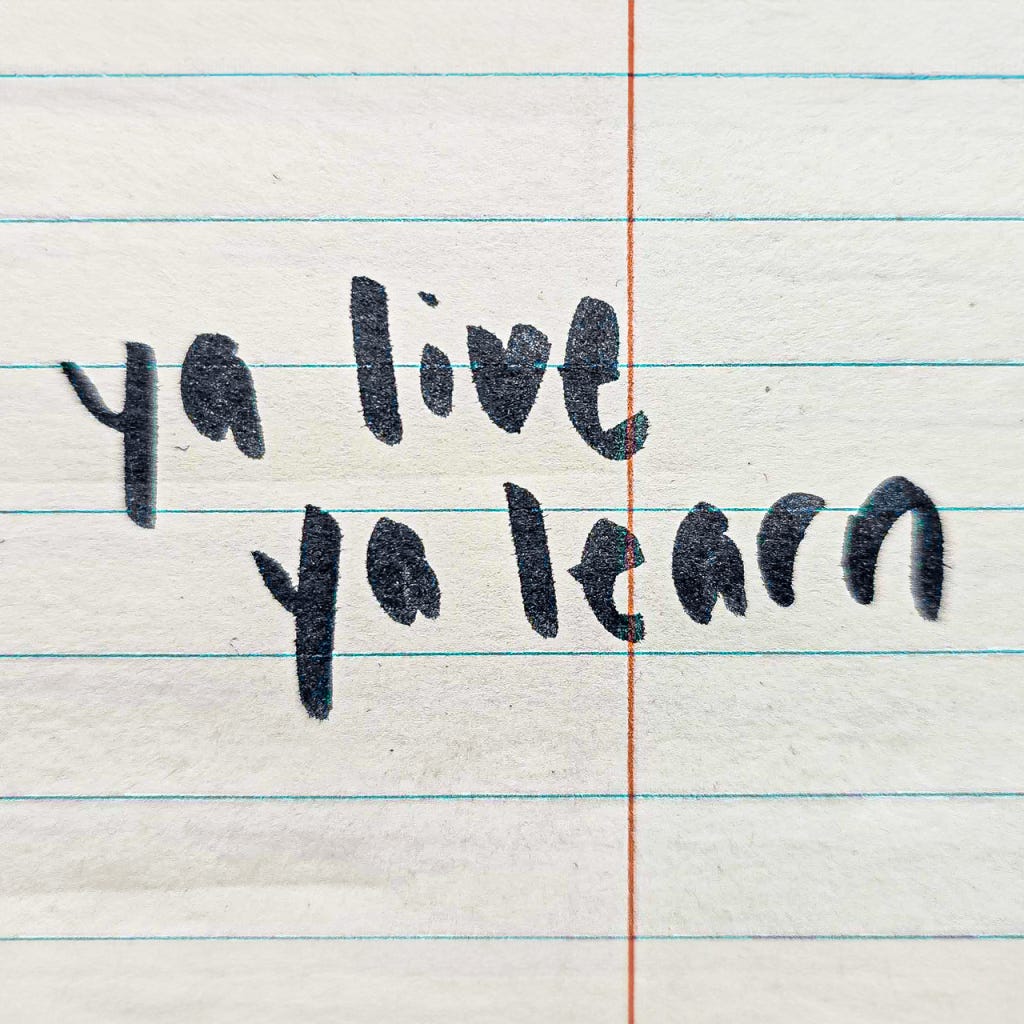 ya live
ya learn